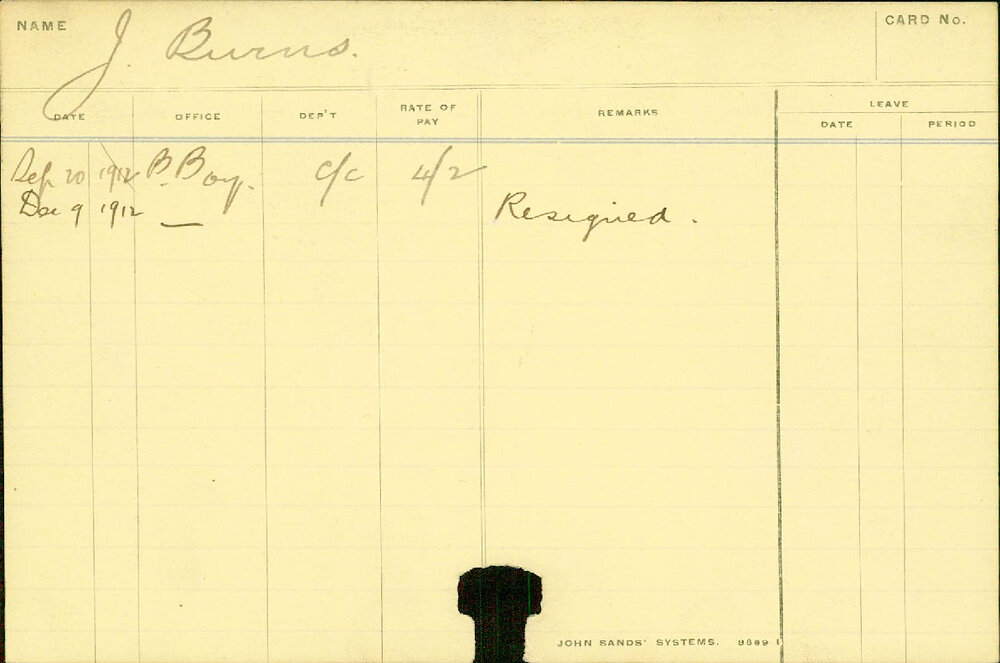 NAME J. Burns. CARD No.
DATE OFFICE DEP'T RATE OF PAY REMARKS LEAVE
DATE PERIOD
Sep 20 1912 B. Boy. C/C 4/2
Dec 9 1912 — Resigned.
JOHN SANDS' SYSTEMS.